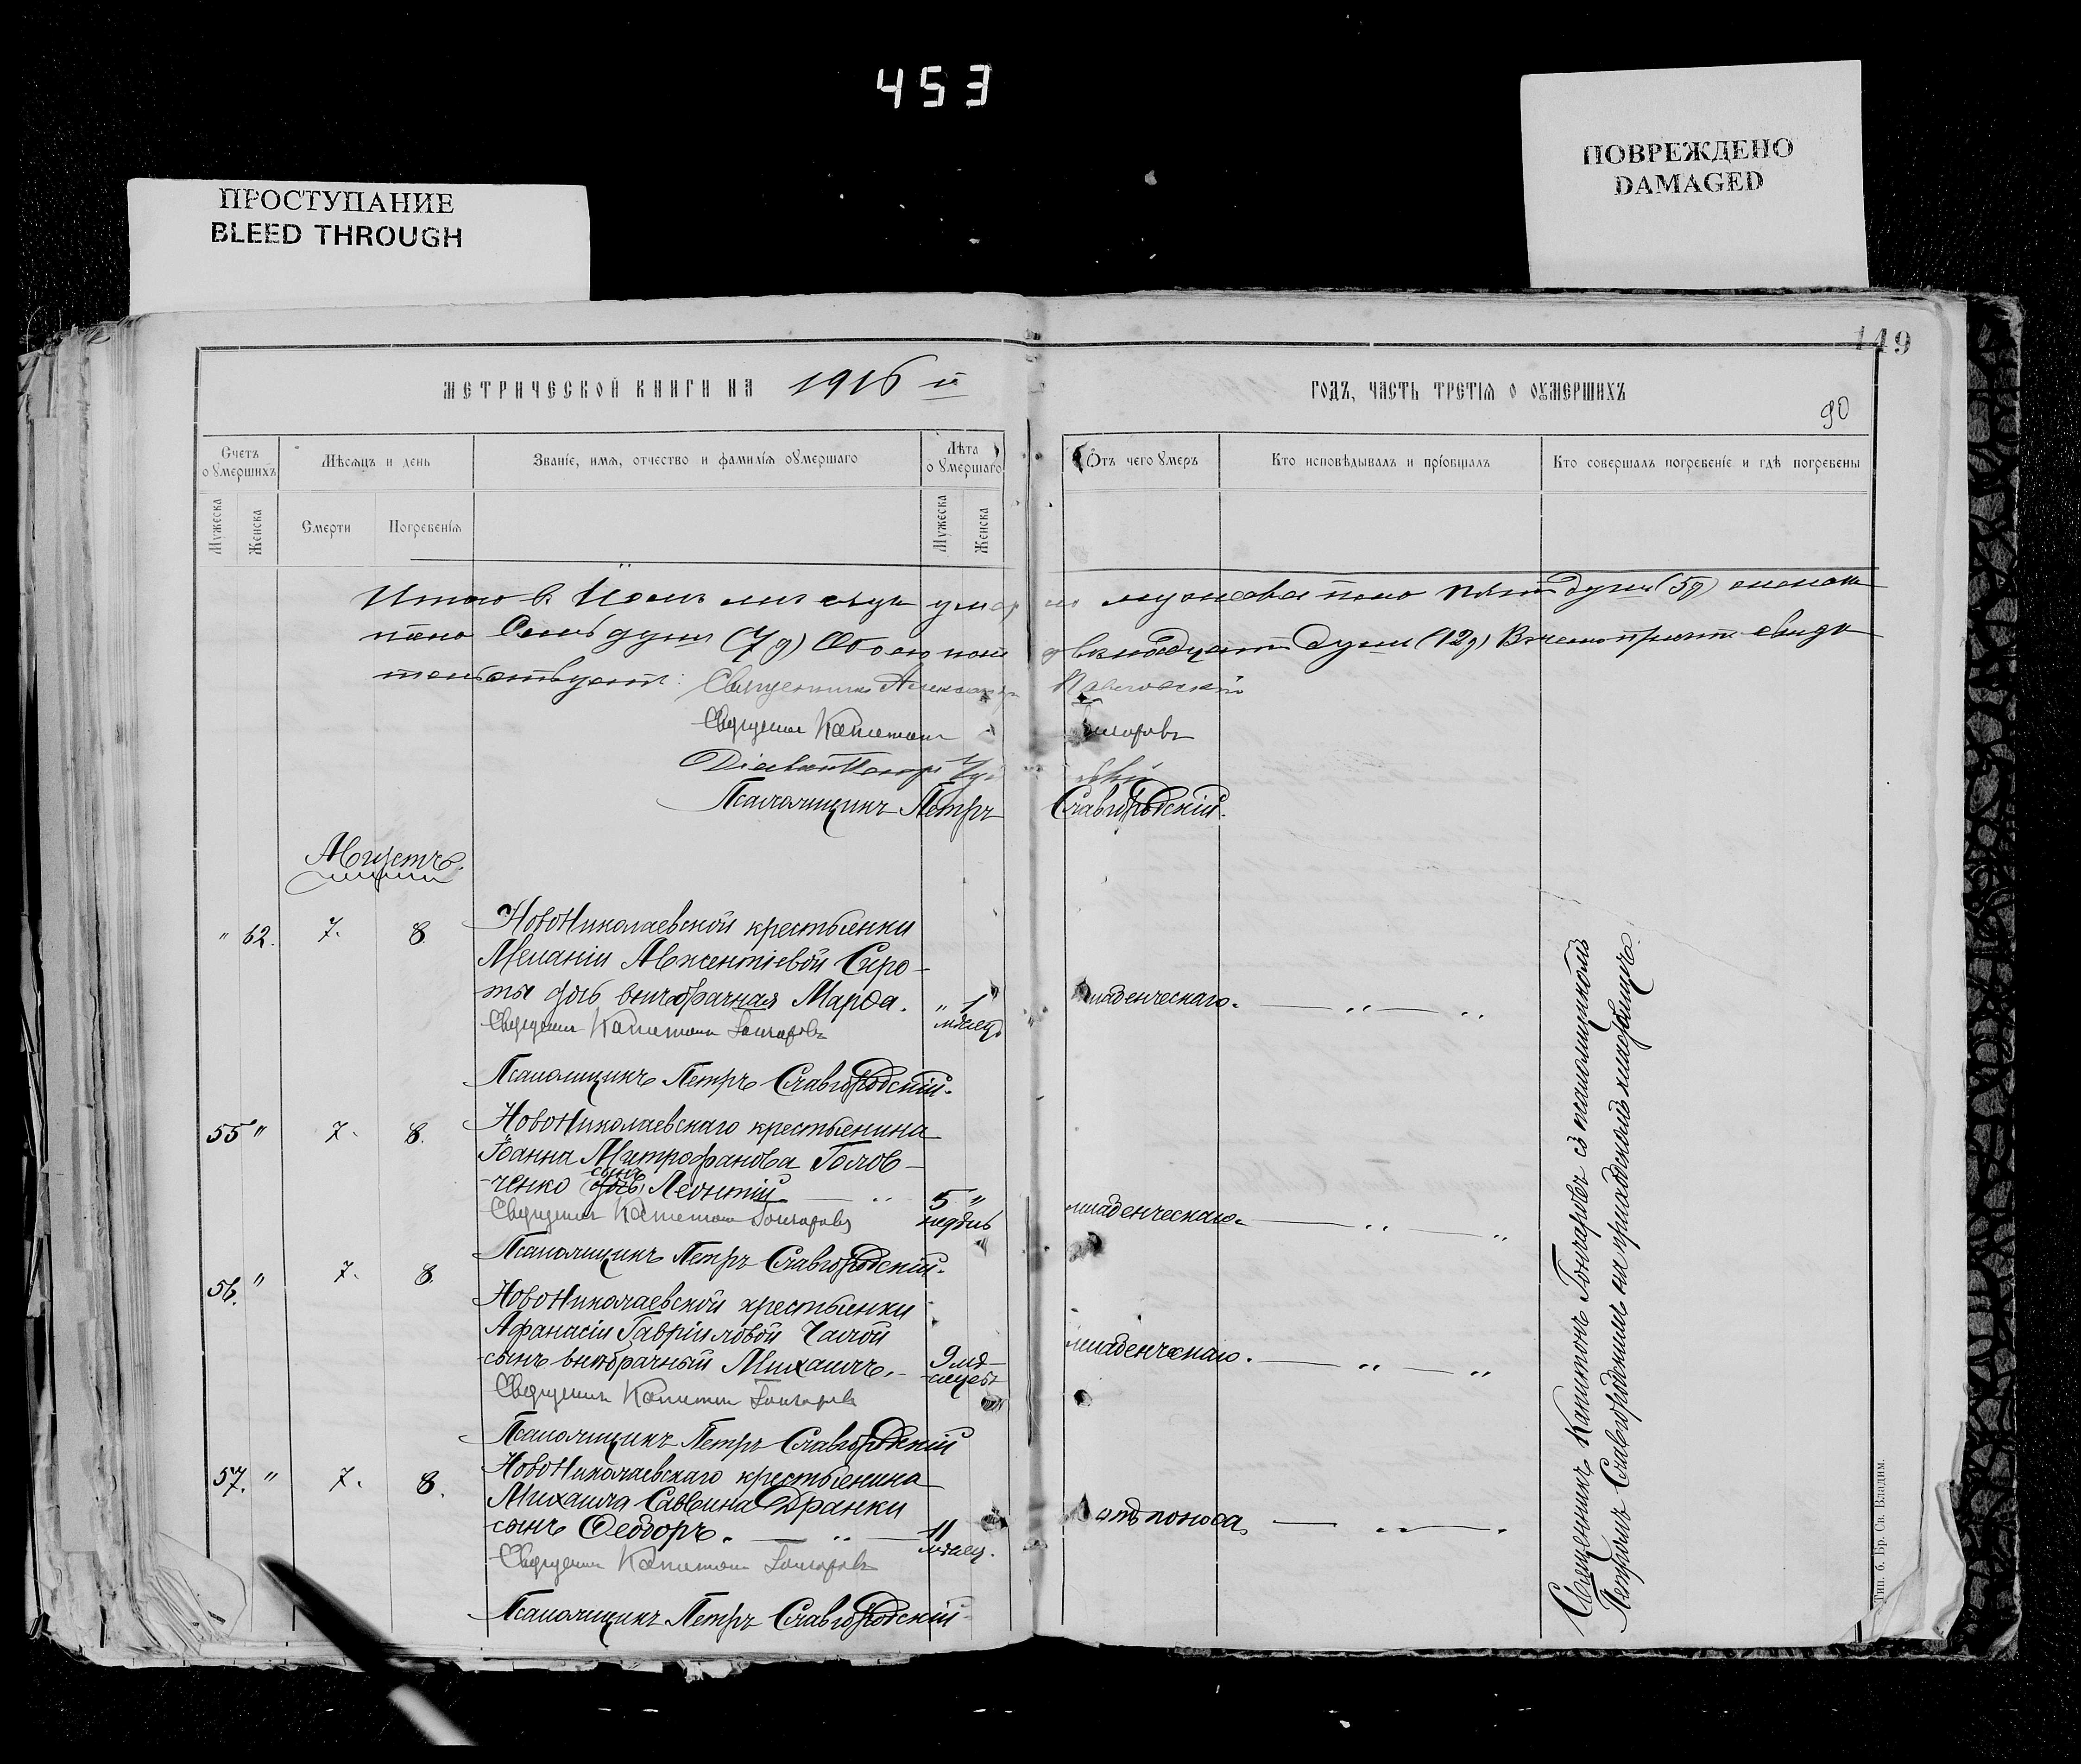 453
ПРОСТУПАНИЕ
BLEED THROUGH
ПОВРЕЖДЕНО
DAMAGED
149
МЕТРИЧЕСКОЙ КНИГИ НА 1916 й
ГОДЪ, ЧАСТЬ ТРЕТІЯ О ОУМЕРШИХЪ
90
Счетъ оумершихъ
Мужеска
Женска
Мѣсяцъ и день
Смерти
Погребенія
Званіе, имя, отчество и фамилія оумершаго
Лѣта оумершаго
Мужеска
Женска
Отъ чего умеръ
Кто исповѣдывалъ и пріобщалъ
Кто совершалъ погребеніе и гдѣ погребены
Итого въ Іюлѣ мѣсяцѣ умерло мужеска пола пять душъ (5д) женска
пола семь душъ (7д) Обоего пола двѣнадцать душъ (12д) В чемъ причтъ свидѣ
тельствуетъ: Священникъ Александръ
Священникъ Капитонъ Гончаровъ
Псаломщикъ Петръ Славгородскій.
Августъ.
" 62. 7. 8. НовоНиколаевской крестьянки
Меланіи Авксентіевой Сиро-
ты дочь внѣбрачная Марѳа. " 1 мѣсяц. младенческаго. — " — "
Священникъ Капитонъ Гончаровъ
Псаломщикъ Петръ Славгородскій.
55 " 7. 8. НовоНиколаевскаго крестьянина
Іоанна Митрофанова Голов-
-ченко сынъ Леонтій. — " 5 " недѣль младенческаго. — " — "
Священникъ Капитонъ Гончаровъ
Псаломщикъ Петръ Славгородскій.
56. " 7. 8. НовоНиколаевской крестьянки
Афанасіи Гавріиловой Чалой
сынъ внѣбрачный Михаилъ. - 9 мѣ-сяцевъ младенческаго. — " — "
Священникъ Капитонъ Гончаровъ
Псаломщикъ Петръ Славгородскій
57. " 7. 8. НовоНиколаевскаго крестьянина
Михаила Саввина Дранки
сынъ Ѳеодоръ. — " — 11 мѣсяц. отъ поноса. — " — "
Священникъ Капитонъ Гончаровъ
Псаломщикъ Петръ Славгородскій
Священникъ Капитонъ Гончаровъ съ псаломщикомъ
Петромъ Славгородскимъ на приходскомъ кладбищѣ.
Тип. б. Бр. Св. Владим.